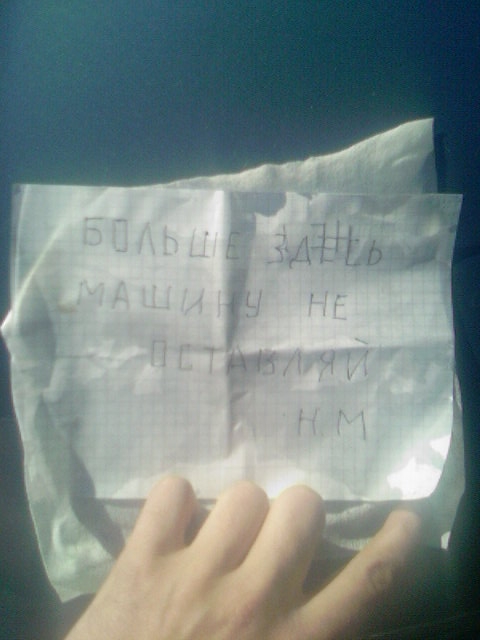 БОЛЬШЕ ЗДЕСЬ
МАШИНУ НЕ
ОСТАВЛЯЙ
Н.М